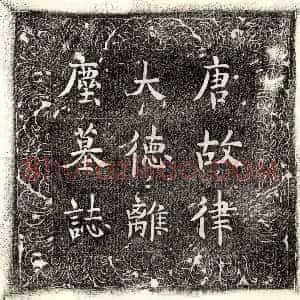 唐故律
大德離
塵墓誌